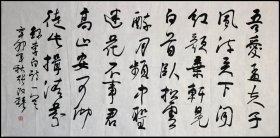 吾愛孟夫子
風流天下聞
紅顏棄軒冕
白首臥松雲
醉月頻中聖
迷花不事君
高山安可仰
徒此揖清芬
李白詩一首
年秋